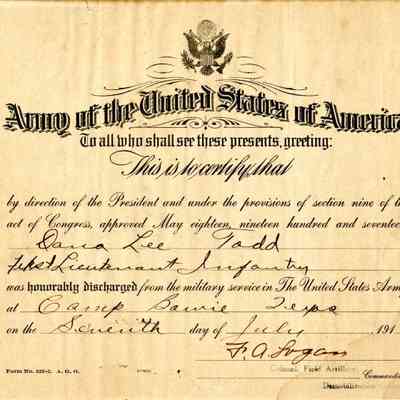 Army of the United States of America
To all who shall see these presents, greeting:
This is to certify, that
by direction of the President and under the provisions of section nine of the
act of Congress, approved May eighteen, nineteen hundred and seventee
Dana Lee Todd
First Lieutenant Infantry
was honorably discharged from the military service in The United States Army
at Camp Bowie Texas
on the Seventh day of July 191
F. A. Logan
Colonel Field Artillery
Form No. 525-2, A. G. O. Commandin